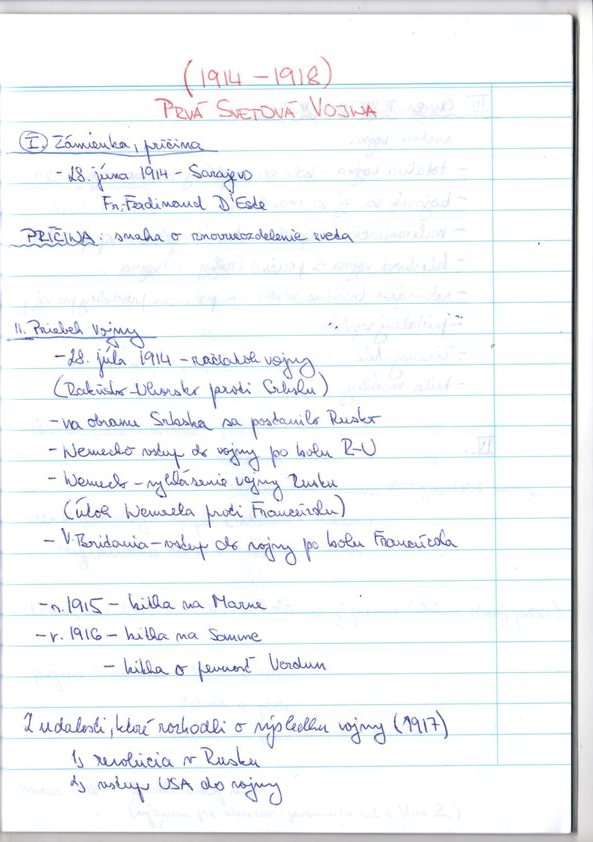 (1914 – 1918)
PRVÁ SVETOVÁ VOJNA
I Zámienka, príčina
- 28. júna 1914 – Sarajevo
Fr. Ferdinand D'Este
PRÍČINA: snaha o znovurozdelenie sveta
II. Priebeh vojny
- 28. júla 1914 – začiatok vojny
(Rakúsko-Uhorsko proti Srbsku)
- na obranu Srbska sa postavilo Rusko
- Nemecko vstup do vojny po boku R-U
- Nemecko – vyhlásenie vojny Rusku
(útok Nemecka proti Francúzsku)
- V. Británia – vstup do vojny po boku Francúzska
- r. 1915 – bitka na Marne
- r. 1916 – bitka na Somme
- bitka o pevnosť Verdun
2 udalosti, ktoré rozhodli o výsledku vojny (1917)
1) revolúcia v Rusku
2) vstup USA do vojny